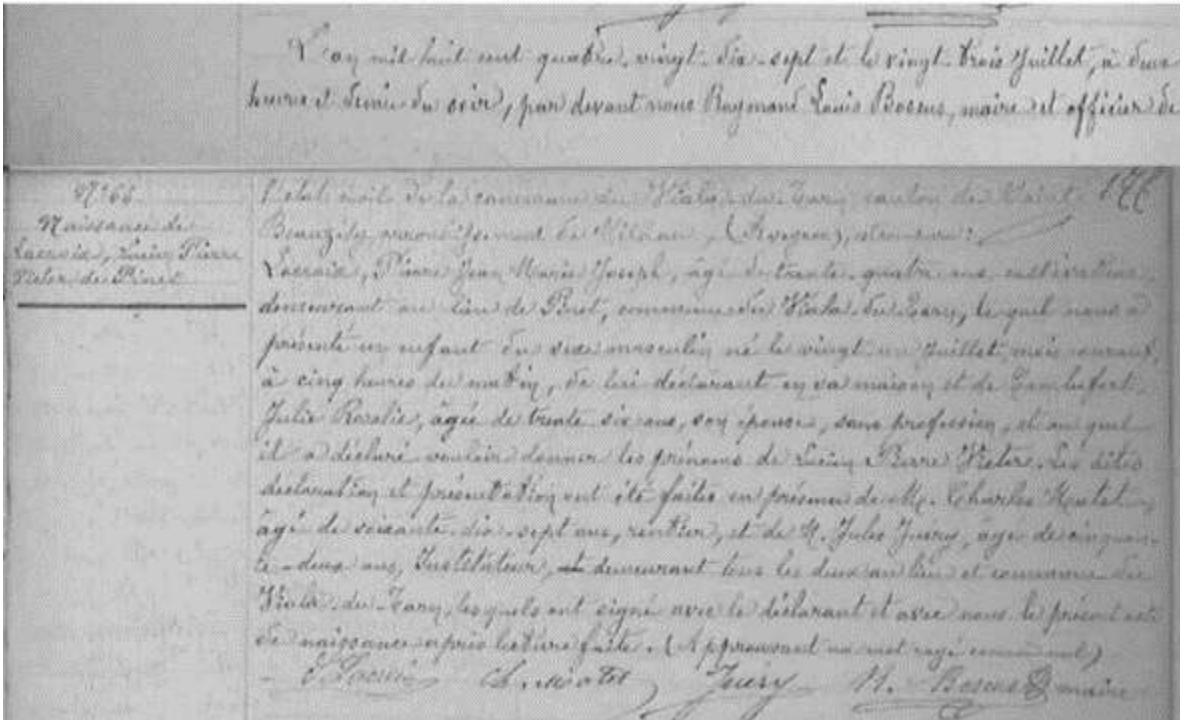 L'an mil huit cent quatre-vingt-dix-sept et le vingt-trois Juillet, à deux
heures et demie du soir, par devant nous Raymond Louis Boscus, maire et officier de
176
l'état civil de la commune du Viala-du-Tarn, canton de Saint
Beauzély, arrondissement de Milhau, (Aveyron), comparu:
N° 66
Naissance de
Lacroix, Lucien Pierre
Victor, de Pinet
Lacroix, Pierre Jean Marie Joseph, âgé de trente-quatre ans, cultivateur,
demeurant au lieu de Pinet, commune du Viala-du-Tarn, lequel nous a
présenté un enfant du sexe masculin né le vingt un Juillet, mois courant,
à cinq heures du matin, de lui déclarant en sa maison et de
Julie Rosalie, âgée de trente six ans, son épouse, sans profession, et auquel
il a déclaré vouloir donner les prénoms de Lucien Pierre Victor. Les dites
déclaration et présentation ont été faites en présence de M. Charles
âgé de soixante-dix-sept ans, rentier, et de M. Jules Juéry, âgé de cinquan-
te-deux ans, Instituteur, demeurant tous les deux au lieu et commune du
Viala-du-Tarn, lesquels ont signé avec le déclarant et avec nous le présent acte
de naissance après lecture faite. (Approuvant un mot rayé comme nul)
Juéry R. Boscus maire